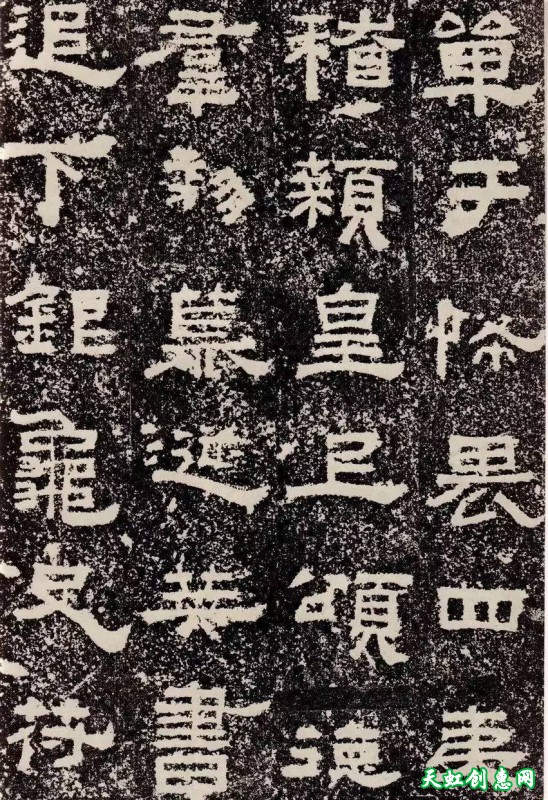 單于怖畏四夷
稽顙皇上頌德
羣黎慕涎英書
追下銀龜史符
天虹创惠网